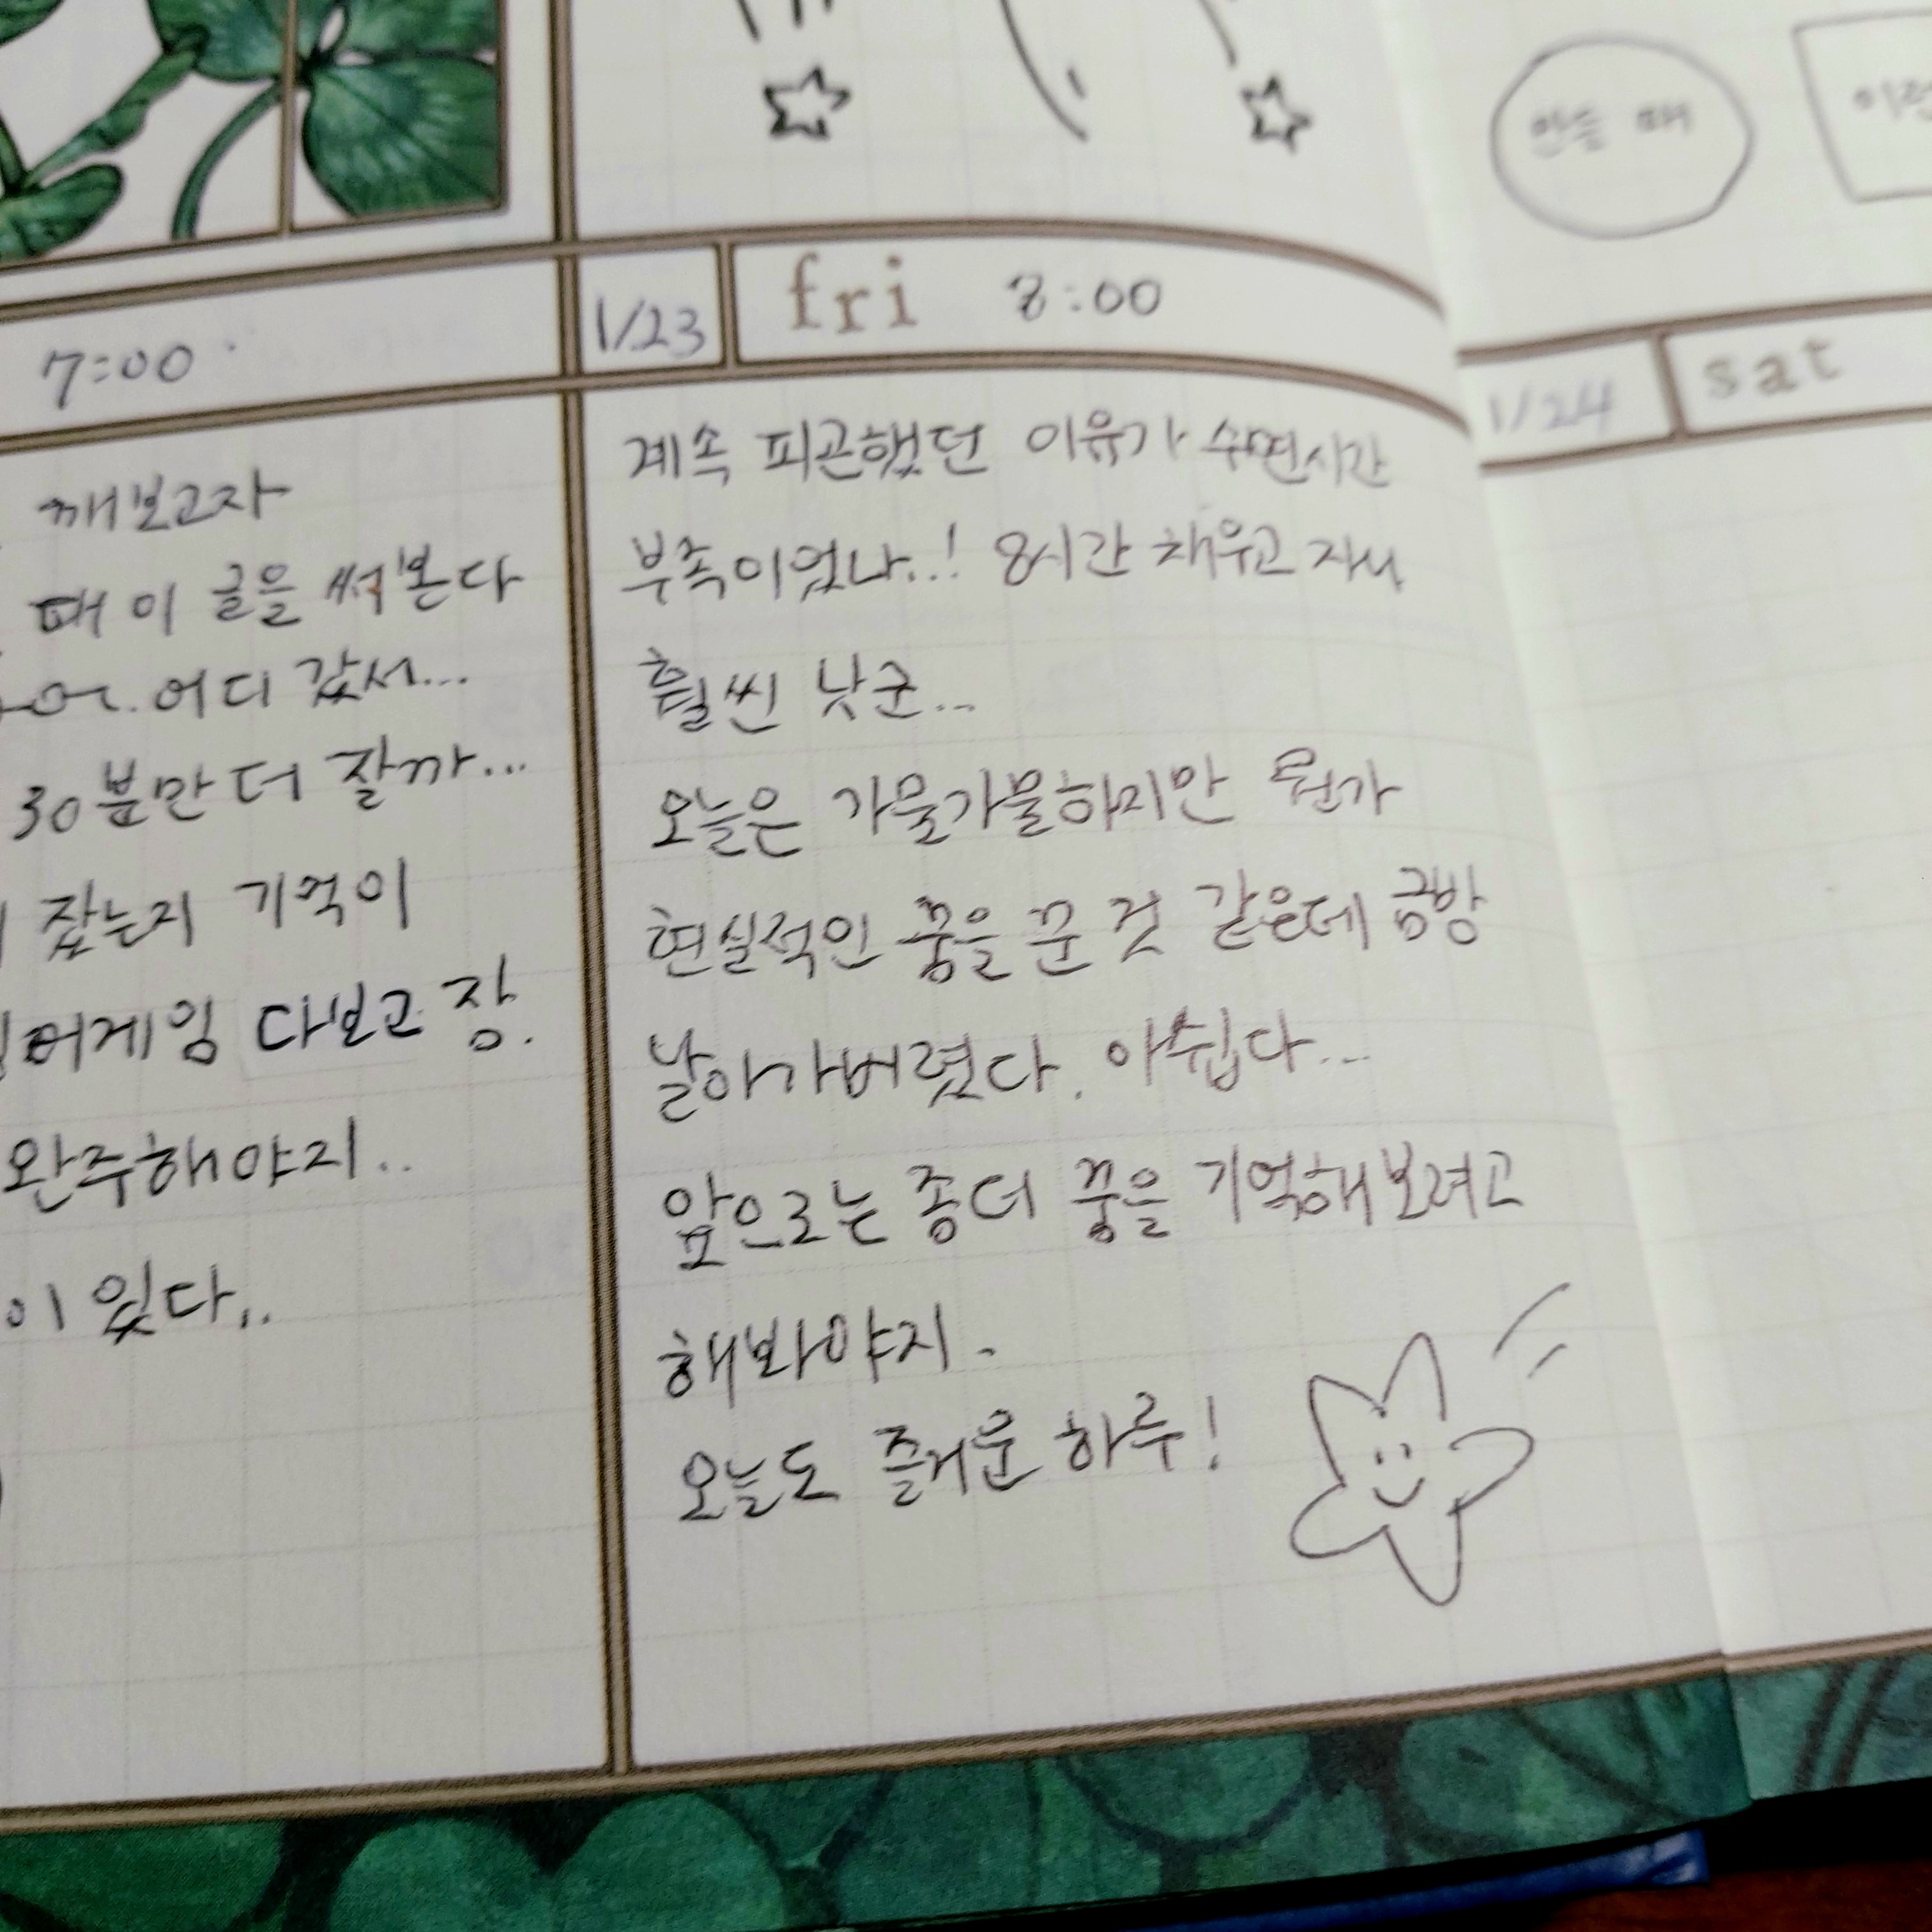 만들 때
7:00
1/23
fri 8:00
1/24
sat
깨보고자
때 이 글을 써본다
어디 갔서...
30분만 더 잘까...
잤는지 기억이
머게임 다보고 장.
완주해야지..
이 있다..
계속 피곤했던 이유가 수면시간
부족이었나..! 8시간 채우고 자니
훨씬 낫군...
오늘은 가물가물하지만 뭔가
현실적인 꿈을 꾼 것 같은데 금방
날아가버렸다. 아쉽다...
앞으로는 좀더 꿈을 기억해보려고
해봐야지.
오늘도 즐거운 하루!